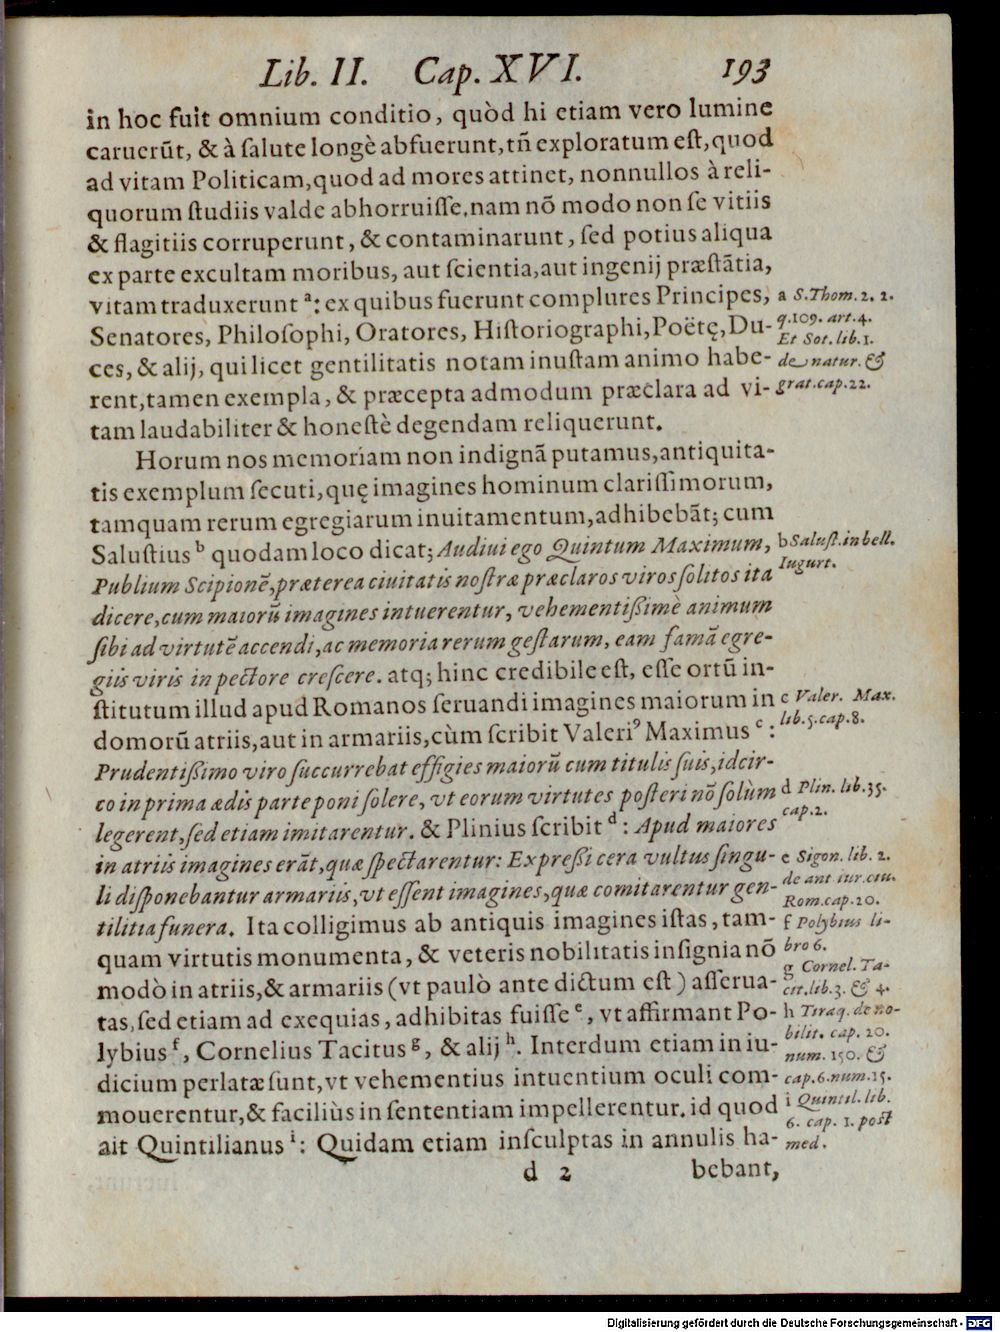 Lib. II. Cap. XVI. 193
in hoc fuit omnium conditio, quòd hi etiam vero lumine
caruerūt, & à ſalute longè abfuerunt, tñ exploratum eſt, quod
ad vitam Politicam, quod ad mores attinet, nonnullos à reli-
quorum ſtudiis valde abhorruiſſe. nam nō modo non ſe vitiis
& flagitiis corruperunt, & contaminarunt, ſed potius aliqua
ex parte excultam moribus, aut ſcientia, aut ingenij præſtātia,
vitam traduxerunt a: ex quibus fuerunt complures Principes,
Senatores, Philoſophi, Oratores, Hiſtoriographi, Poëtę, Du-
ces, & alij, qui licet gentilitatis notam inuſtam animo habe-
rent, tamen exempla, & præcepta admodum præclara ad vi-
tam laudabiliter & honeſtè degendam reliquerunt.
a S. Thom. 2. 2.
q. 109. art. 4.
Et Sot. lib. 1.
de natur. &
grat. cap. 22.
Horum nos memoriam non indignā putamus, antiquita-
tis exemplum ſecuti, quę imagines hominum clariſſimorum,
tamquam rerum egregiarum inuitamentum, adhibebāt; cum
Saluſtius b quodam loco dicat; Audiui ego Quintum Maximum,
Publium Scipionē, præterea ciuitatis noſtræ præclaros viros ſolitos ita
dicere, cum maiorū imagines intuerentur, vehementißimè animum
ſibi ad virtutē accendi, ac memoria rerum geſtarum, eam famā egre-
giis viris in pectore creſcere. atq; hinc credibile eſt, eſſe ortū in-
ſtitutum illud apud Romanos ſeruandi imagines maiorum in
domorū atriis, aut in armariis, cùm ſcribit Valeriꝰ Maximus c:
Prudentißimo viro ſuccurrebat effigies maiorū cum titulis ſuis, idcir-
co in prima ædis parte poni ſolere, vt eorum virtutes poſteri nō ſolùm
legerent, ſed etiam imitarentur. & Plinius ſcribit d: Apud maiores
in atriis imagines erāt, quæ ſpectarentur: Expreßi cera vultus ſingu-
li diſponebantur armariis, vt eſſent imagines, quæ comitarentur gen-
tilitia funera. Ita colligimus ab antiquis imagines iſtas, tam-
quam virtutis monumenta, & veteris nobilitatis inſignia nō
modò in atriis, & armariis (vt paulò ante dictum eſt) aſſerua-
tas, ſed etiam ad exequias, adhibitas fuiſſe e, vt affirmant Po-
lybius f, Cornelius Tacitus g, & alij h. Interdum etiam in iu-
dicium perlatæ ſunt, vt vehementius intuentium oculi com-
mouerentur, & faciliùs in ſententiam impellerentur. id quod
ait Quintilianus i: Quidam etiam inſculptas in annulis ha-
b Saluſt. in bell.
Iugurt.
c Valer. Max.
lib. 5. cap. 8.
d Plin. lib. 35.
cap. 2.
e Sigon. lib. 2.
de ant. iur. ciu.
Rom. cap. 20.
f Polybius li-
bro 6.
g Cornel. Ta-
cit. lib. 3. & 4.
h Tiraq. de no-
bilit. cap. 20.
num. 150. &
cap. 6. num. 15.
i Quintil. lib.
6. cap. 1. poſt
med.
d 2 bebant,
Digitalisierung gefördert durch die Deutsche Forschungsgemeinschaft - DFG